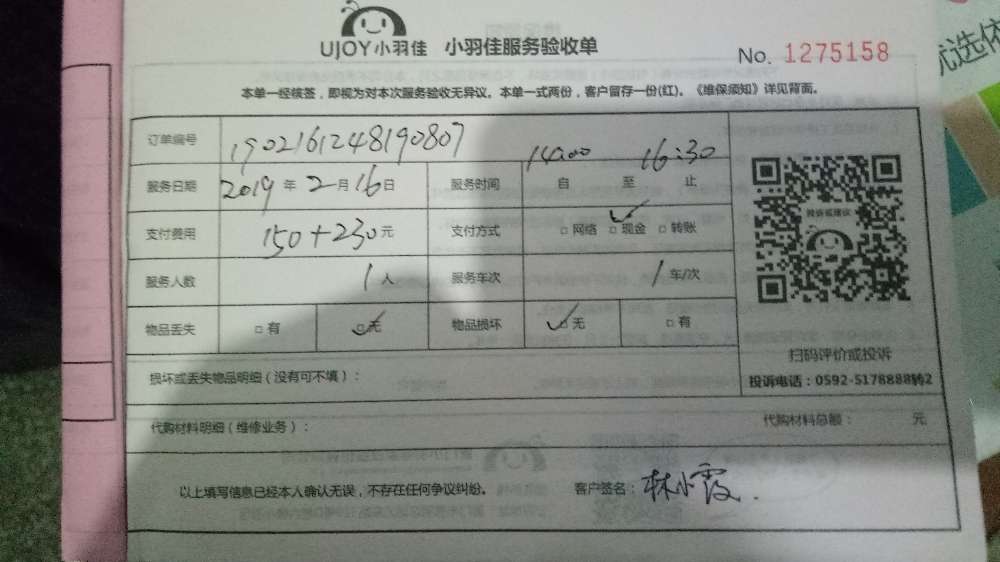 UJOY小羽佳 小羽佳服务验收单
No. 1275158
本单一经核签，即视为对本次服务验收无异议。本单一式两份，客户留存一份(红)。《维保须知》详见背面。
订单编号 1902161248190807
服务日期 2019 年 2 月 16 日 服务时间 14:00 自 至 16:30 止
支付费用 150+230 元 支付方式 □网络 □现金 □转账
服务人数 1 人 服务车次 1 车/次
物品丢失 □有 □无 物品损坏 □无 □有
投诉或建议
扫码评价或投诉
投诉电话：0592-5178888转2
损坏或丢失物品明细（没有可不填）：
代购材料明细（维修业务）： 代购材料总额： 元
以上填写信息已经本人确认无误，不存在任何争议纠纷。 客户签名：林小霞
优选依